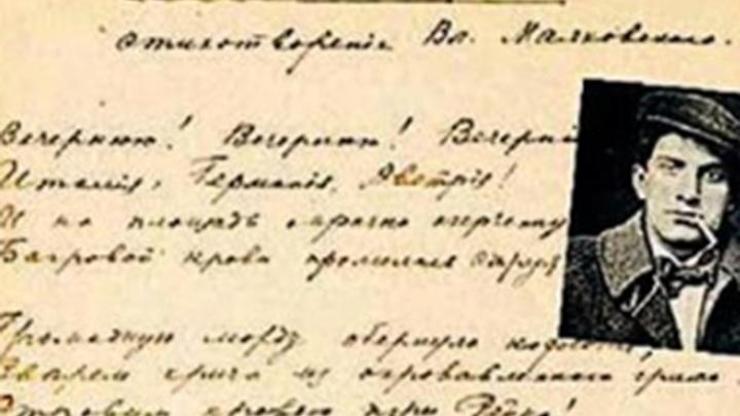 Стихотворенiе Вл. Маяковского.
Вечернюю! Вечернюю! Вечерню
Италiя, Германiя, Австрiя!
И на площадь мрачно очерченну
Багровой крови пролилась струя
Громадную морду обернула
Зверем крича из окровавленного
Отравим кровью игры Рейна!